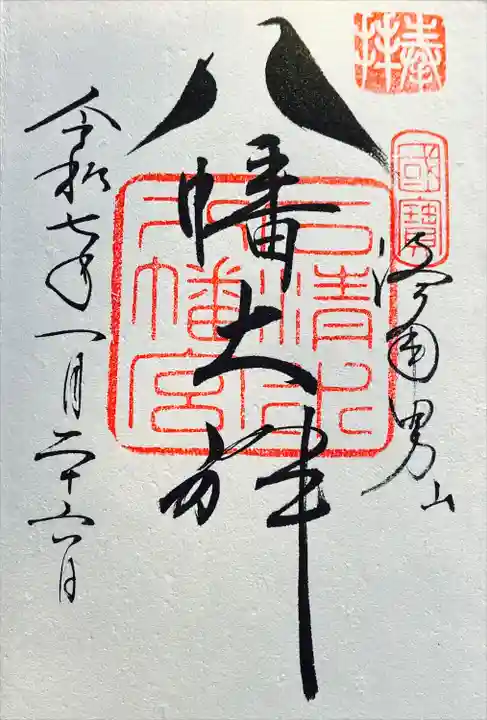 奉拝
國寶
洛南男山
八幡大神
石清水
八幡宮
令和七年一月二十六日